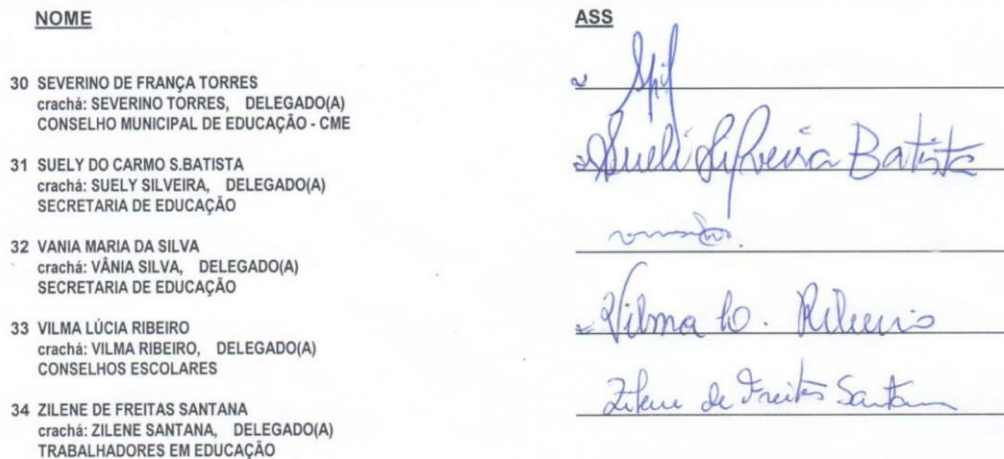 NOME
ASS
30 SEVERINO DE FRANÇA TORRES
crachá: SEVERINO TORRES, DELEGADO(A)
CONSELHO MUNICIPAL DE EDUCAÇÃO - CME
31 SUELY DO CARMO S.BATISTA
crachá: SUELY SILVEIRA, DELEGADO(A)
SECRETARIA DE EDUCAÇÃO
Sueli Sylveira Batista
32 VANIA MARIA DA SILVA
crachá: VÂNIA SILVA, DELEGADO(A)
SECRETARIA DE EDUCAÇÃO
33 VILMA LÚCIA RIBEIRO
crachá: VILMA RIBEIRO, DELEGADO(A)
CONSELHOS ESCOLARES
Vilma L. Ribeiro
34 ZILENE DE FREITAS SANTANA
crachá: ZILENE SANTANA, DELEGADO(A)
TRABALHADORES EM EDUCAÇÃO
Zilene de Freitas Santana